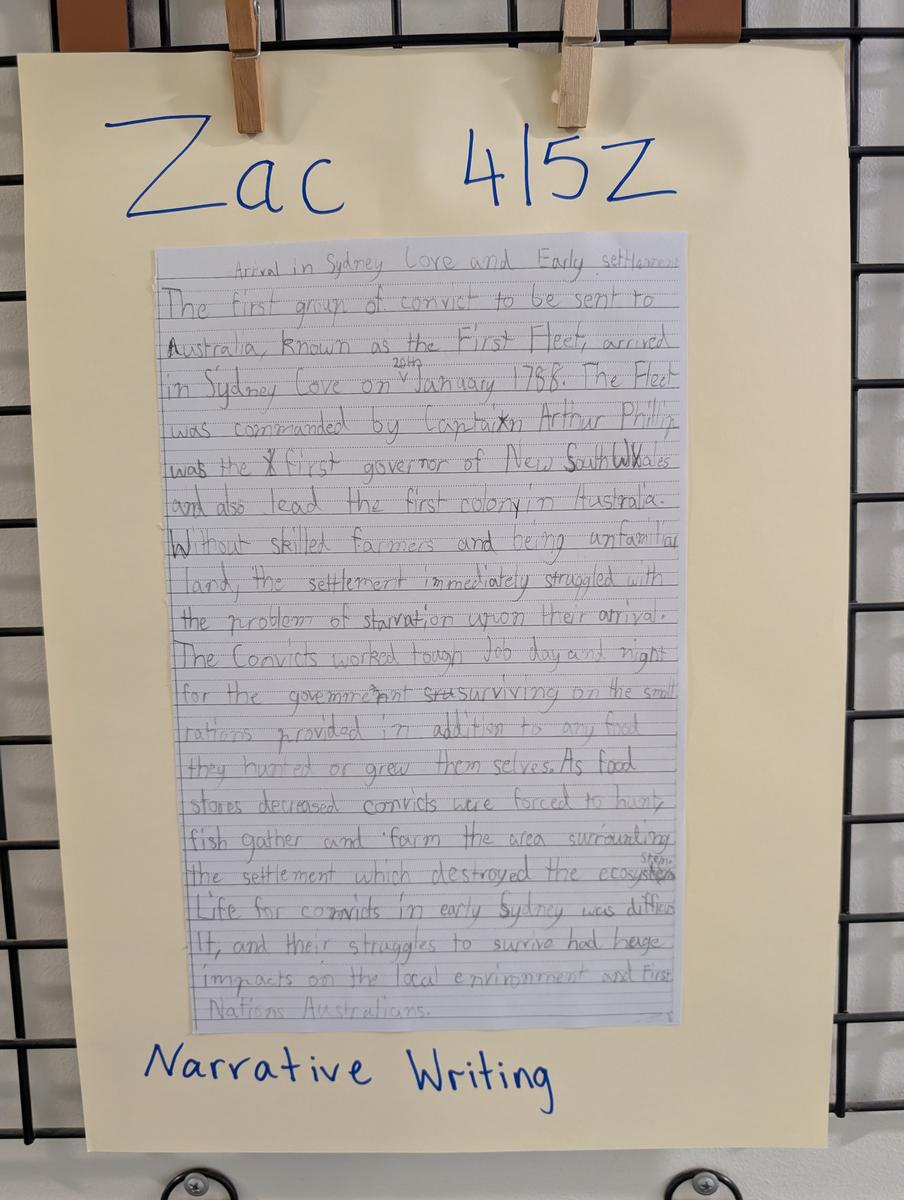 Zac 4/5Z
Arrival in Sydney Cove and Early settlement
The first group of convict to be sent to
Australia, known as the First Fleet, arrived
in Sydney Cove on 26th January 1788. The Fleet
was commanded by Captain Arthur Phillip
was the first governor of New South Wales
and also lead the first colony in Australia.
Without skilled farmers and being unfamiliar
land, the settlement immediately struggled with
the problem of starvation upon their arrival.
The Convicts worked tough Job day and night
for the government surviving on the small
rations provided in addition to any food
they hunted or grew them selves. As food
stores decreased convicts were forced to hunt,
fish gather and farm the area surrounting
the settlement which destroyed the ecosystem.
Life for convicts in early Sydney was difficu
lt, and their struggles to survive had huge
impacts on the local environment and First
Nations Australians.
Narrative Writing